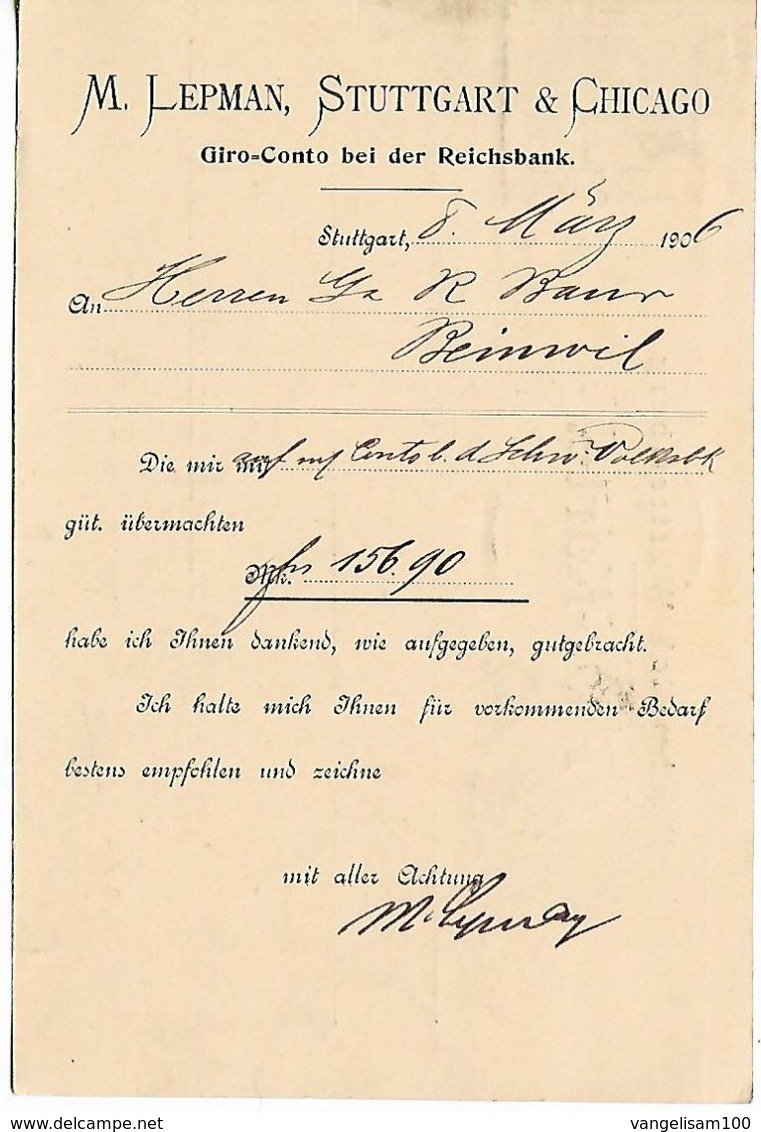 M. LEPMAN, STUTTGART & CHICAGO
Giro=Conto bei der Reichsbank.
Stuttgart, 8. März 1906
An Herren R Baur
Beinwil
Die mir auf m/ Conto b. d. Schw. Volksbk
güt. übermachten
frs 156.90
habe ich Ihnen dankend, wie aufgegeben, gutgebracht.
Ich halte mich Ihnen für vorkommenden Bedarf
bestens empfohlen und zeichne
mit aller Achtung
M. Lepman
delcampe.net
vangelisam100